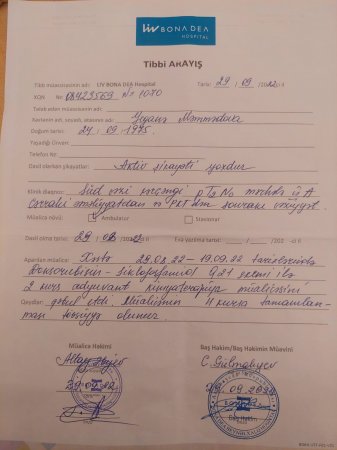 LIV BONA DEA
HOSPITAL
Tibbi ARAYIŞ
Tibb müəssisəsinin adı: LIV BONA DEA Hospital Tarix: 29 / 09 / 2022-ci il
XÇN № 08423569 № 1070
Tələb edən müəssisənin adı:
Xəstənin adı, soyadı, atasının adı: Yeganə
Doğum tarixi: 24 / 09 / 1975
Yaşadığı Ünvan:
Telefon №:
Daxil olarkən şikayətlər: Aktiv şikayəti yoxdur
Klinik diaqnoz: Süd vəzi xərçəngi
Cərrahi əməliyyatdan və sonrakı vəziyyət
Müalicə növü: Ambulator Stasionar
Daxil olma tarixi: Evə yazılma tarixi: / /20 -ci il
Aparılan müalicə: Xəstə 29.08.22 – 19.09.22 tarixlərində
Doksorubisin – siklofosfamid q21 sxemi ilə
2 kurs adyuvant kimyaterapiya müalicəsini
Qeydlər: qəbul etdi. Müalicənin 4 kursa tamamlan-
ması tövsiyyə olunur
Müalicə Həkimi Baş Həkim/Baş Həkimin Müavini
29.09.22 29.09.2022
Baş Həkim